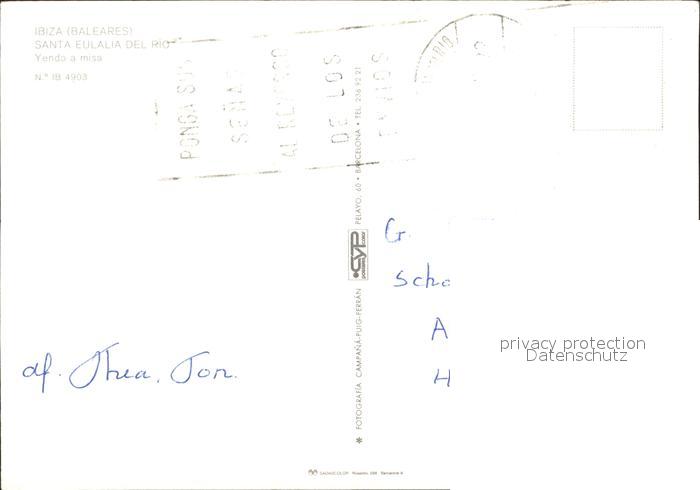 IBIZA (BALEARES)
SANTA EULALIA DEL RIO
Yendo a misa
N.º IB 4903
PONGA SUS
SEÑAS
AL REVERSO
DE LOS
ENVIOS
PELAYO, 60 • BARCELONA • TEL. 236 92 21
CYP
FOTOGRAFÍA CAMPAÑÁ-PUIG-FERRÁN
G.
Scho
A
H
privacy protection
Datenschutz
af.